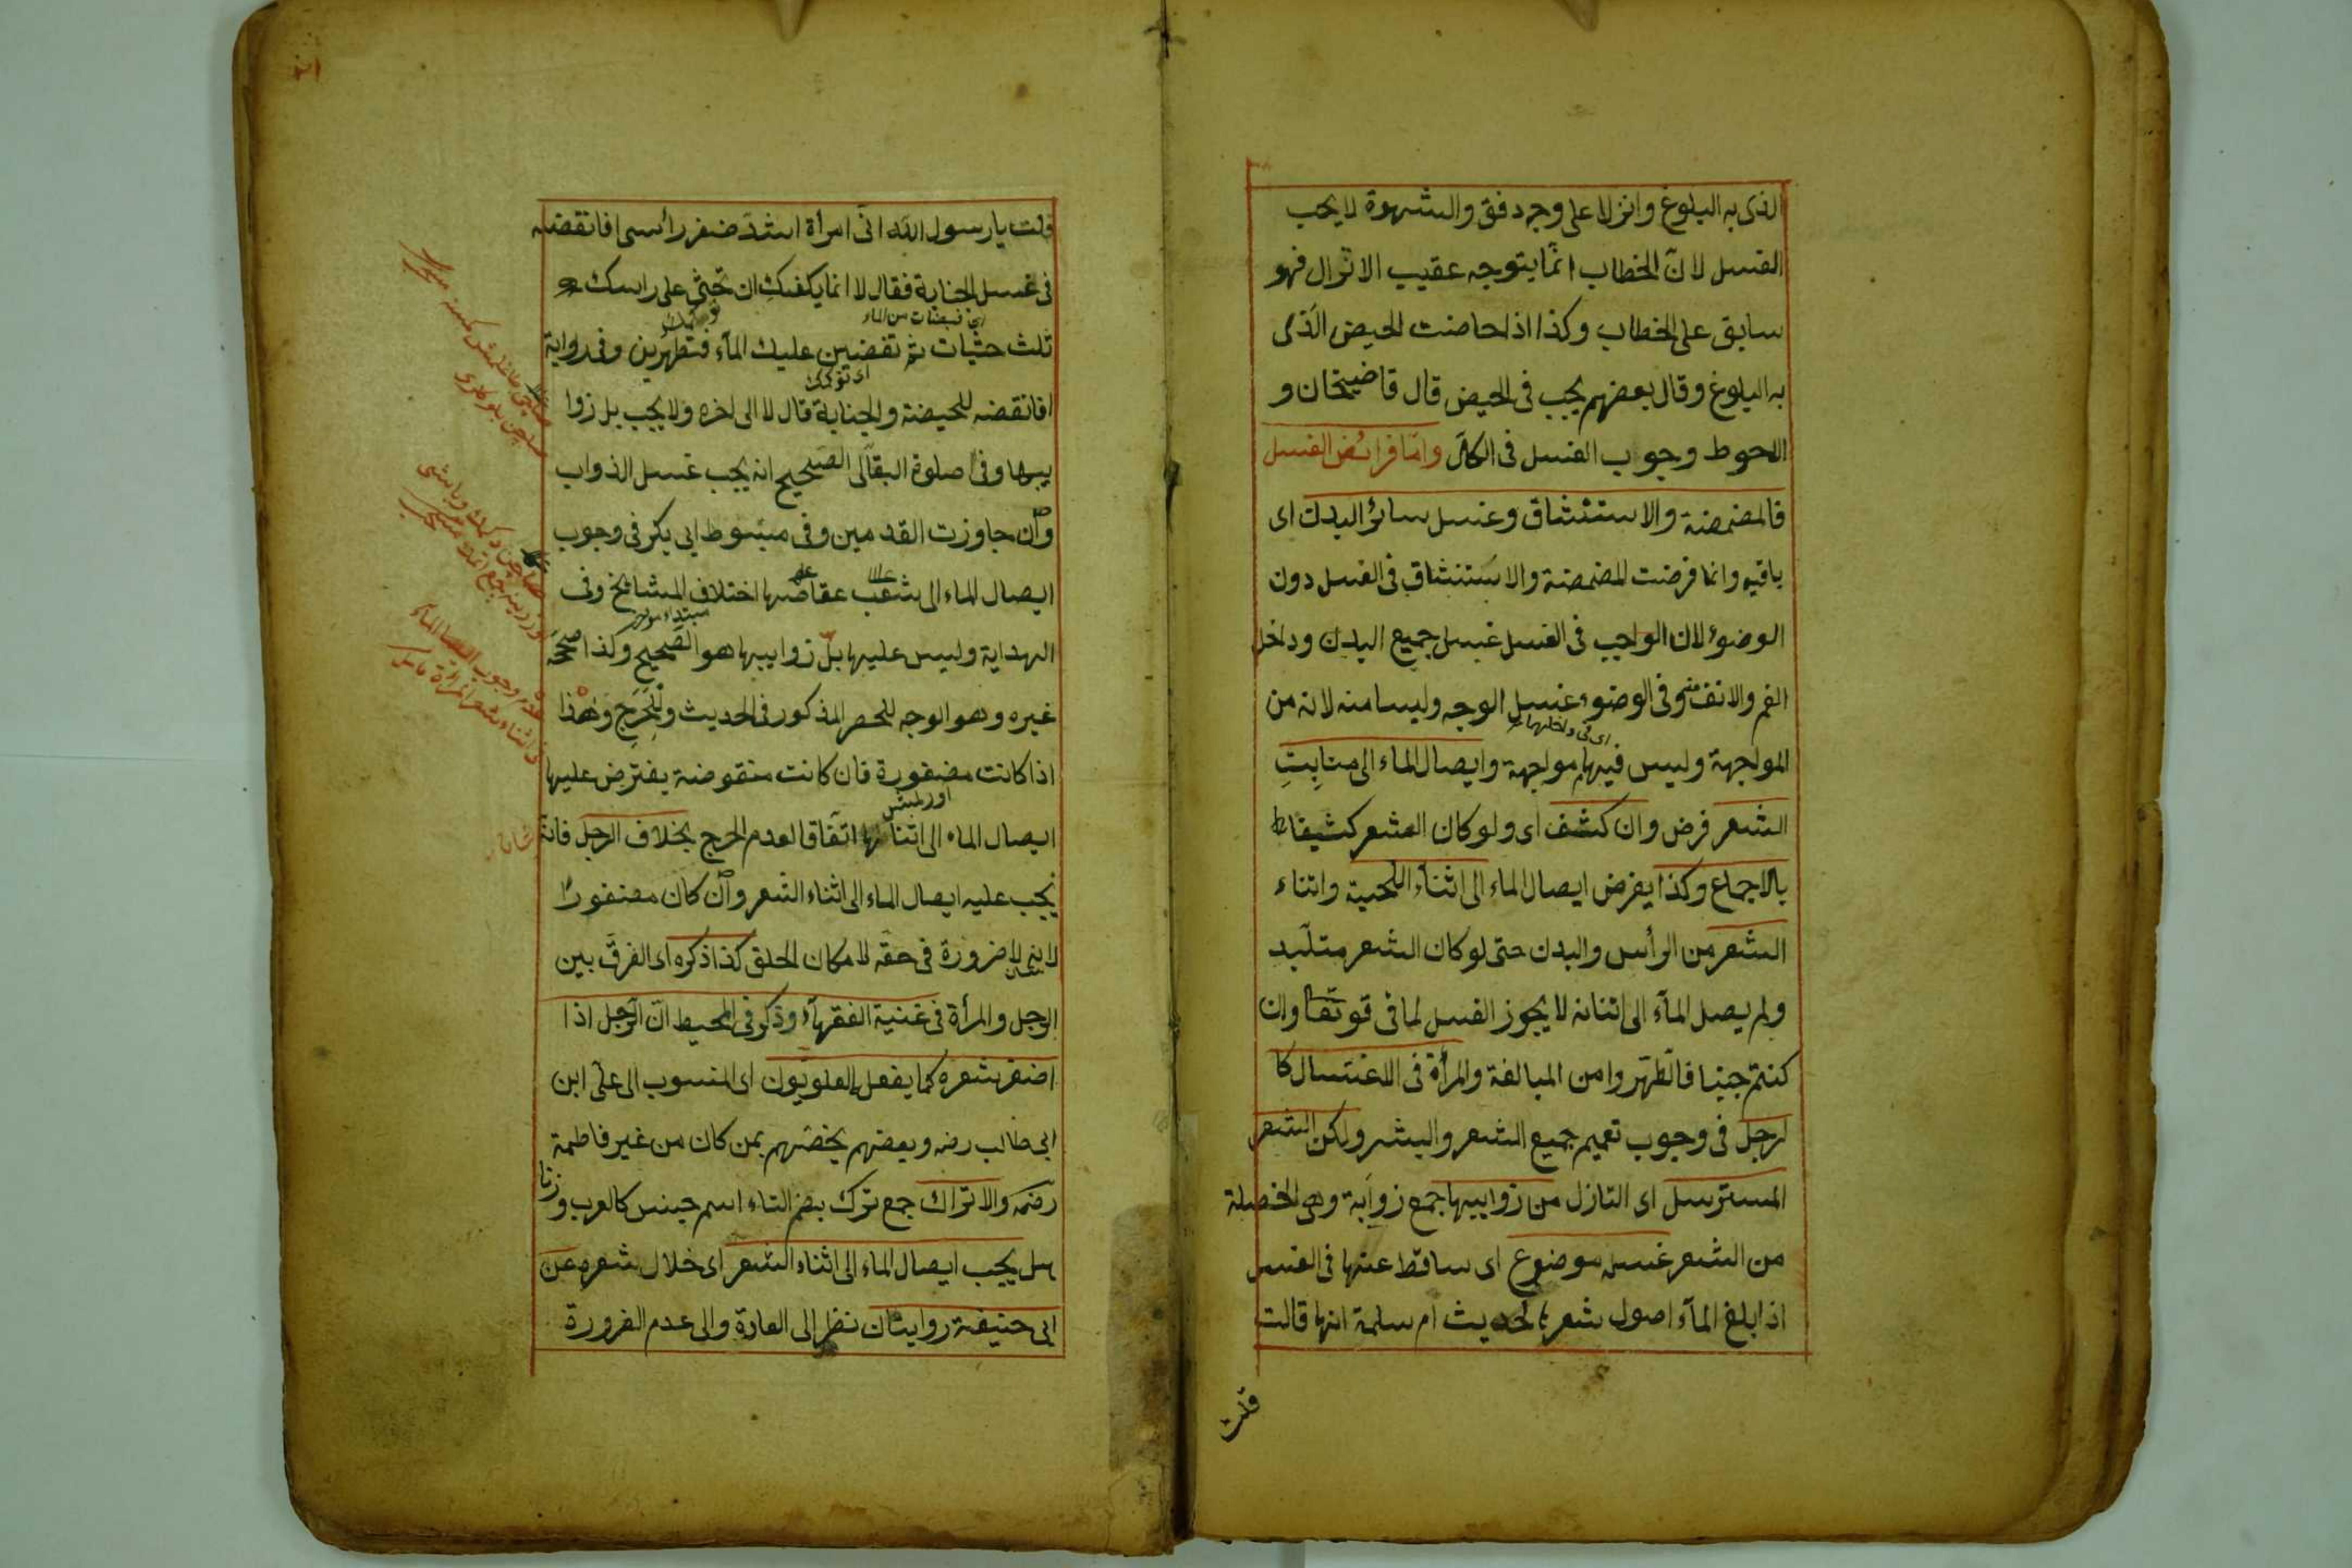 الذى به البلوغ وانزلا على وجه دفق والشهوة لا يجب
الغسل لان الخطاب انما يتوجه عقيب الانزال فهو
سابق على الخطاب وكذا اذا حاضت الحيض الذى
به البلوغ وقال بعضهم يجب فى الحيض قال قاضيخان و
الاحوط وجوب الغسل فى الكل واما فرائض الغسل
فالمضمضة والاستنشاق وغسل سائر البدن اى
باقيه وانما فرضت المضمضة والاستنشاق فى الغسل دون
الوضوء لان الواجب فى الغسل غسل جميع البدن وداخل
الفم والانف منه وفى الوضوء غسل الوجه وليسا منه لانه من
اى فى داخلهما
المواجهة وليس فيهما مواجهة وايصال الماء الى منابت
الشعر فرض وان كشف اى ولو كان الشعر كثيفا
بالاجماع وكذا يفرض ايصال الماء الى اثناء اللحية واثناء
الشعر من الرأس والبدن حتى لو كان الشعر متلبد
ولم يصل الماء الى اثنائه لا يجوز الغسل لما فى قوله تعا وان
كنتم جنبا فاطهروا من المبالغة والمرأة فى الاغتسال كا
لرجل فى وجوب تعميم جميع الشعر والبشر ولكن الشعر
المسترسل اى النازل من زوايبها جمع زوابة وهى الخصلة
من الشعر غسله موضوع اى ساقط عنها فى الغسل
اذا بلغ الماء اصول شعرها لحديث ام سلمة انها قالت
قلت
قلت يا رسول الله انى امرأة اشد ضفر رأسى افانقضه
فى غسل الجنابة فقال لا انما يكفيك ان تحثى على راسك
اى قبضات من الماء
ثلث حثيات ثم تفضين عليك الماء فتطهرين وفى رواية
افانقضه للحيضة والجنابة قال لا الى اخره ولا يجب بل زوا
يبها وفى صلوة البقالى الصحيح انه يجب غسل الذواب
وان جاوزت القدمين وفى مبسوط ابى بكر فى وجوب
ايصال الماء الى شعب عقاصها اختلاف المشائخ وفى
الهداية وليس عليها بل زوايبها هو الصحيح وكذا صححه
غيره وهو الوجه للحصر المذكور فى الحديث وللحرج وهذا
اذا كانت مضفورة فان كانت منقوضة يفترض عليها
ايصال الماء الى اثنائها اتفاقا لعدم الحرج بخلاف الرجل فانه
يجب عليه ايصال الماء الى اثناء الشعر وان كان مضفورا
لانه لا ضرورة فى حقه لامكان الحلق كذا ذكره اى الفرق بين
الرجل والمرأة فى غنية الفقهاء وذكر فى المحيط ان الرجل اذا
اضفر شعره كما يفعله العلويون اى المنسوب الى على ابن
ابى طالب رضه وبعضهم يخصهم بمن كان من غير فاطمة
رضه والاتراك جمع ترك بضم التاء اسم جنس كالعرب وزنا
هل يجب ايصال الماء الى اثناء الشعر اى خلال شعره عن
ابى حنيفة روايتان نظر الى العادة والى عدم الضرورة